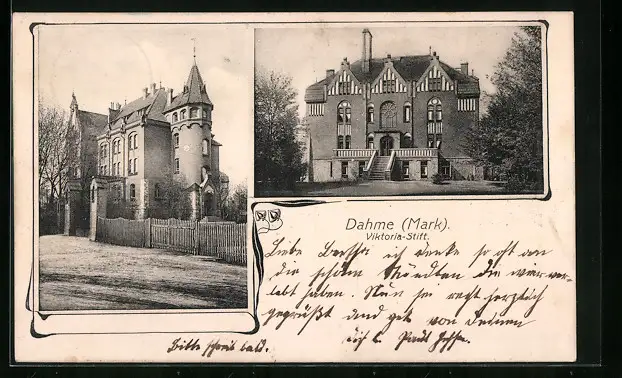 Dahme (Mark).
Viktoria-Stift.
Liebe Bertha ich denke so oft an
die schönen Stunden die wir ver-
lebt haben. Nun sei recht herzlich
gegrüßt und gek von Deinen
Paul
Bitte schreib bald.